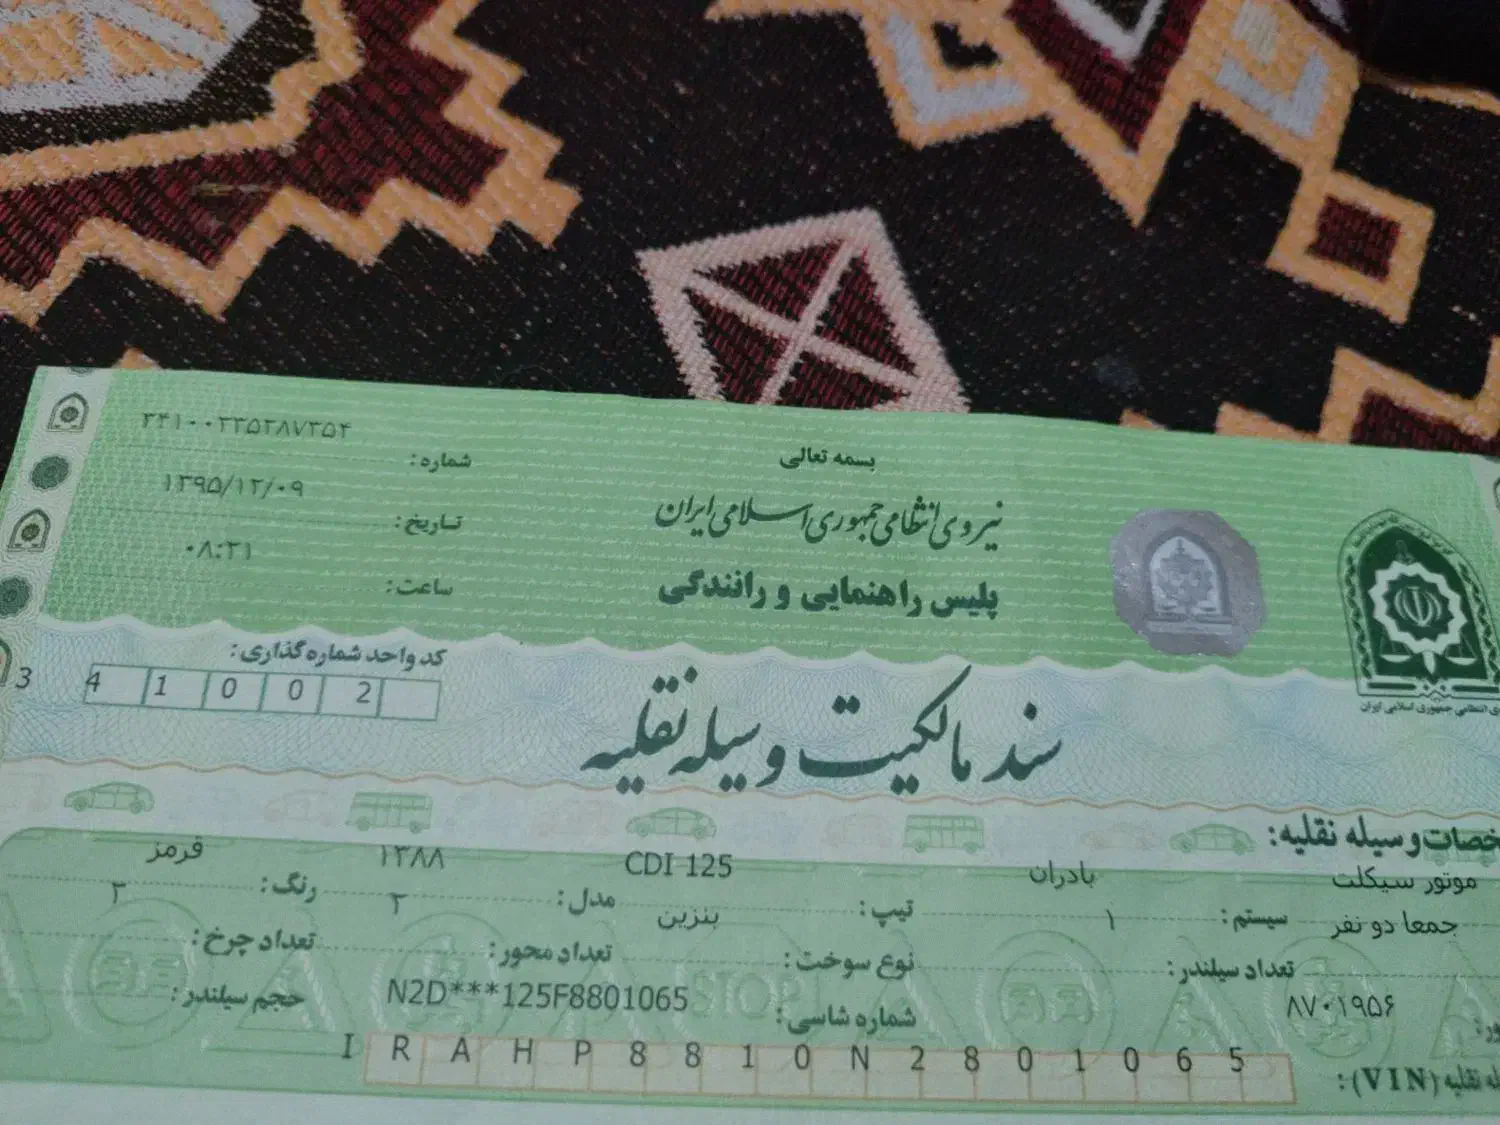 بسمه تعالی
نیروی انتظامی جمهوری اسلامی ایران
پلیس راهنمایی و رانندگی
شماره: ۳۴۱۰۰۲۳۵۲۸۷۳۵۴
تاریخ: ۱۳۹۵/۱۲/۰۹
ساعت: ۰۸:۳۱
کد واحد شماره گذاری:
3 4 1 0 0 2
سند مالکیت وسیله نقلیه
نیروی انتظامی جمهوری اسلامی ایران
مشخصات وسیله نقلیه:
موتور سیکلت سیستم: بادران تیپ: CDI 125 مدل: ۱۳۸۸ رنگ: قرمز
جمعا دو نفر تعداد سیلندر: ۱ نوع سوخت: بنزین تعداد محور: ۲ تعداد چرخ: ۲
۸۷۰۱۹۵۶ شماره شاسی: N2D***125F8801065 حجم سیلندر:
(VIN): I R A H P 8 8 1 0 N 2 8 0 1 0 6 5
STOP